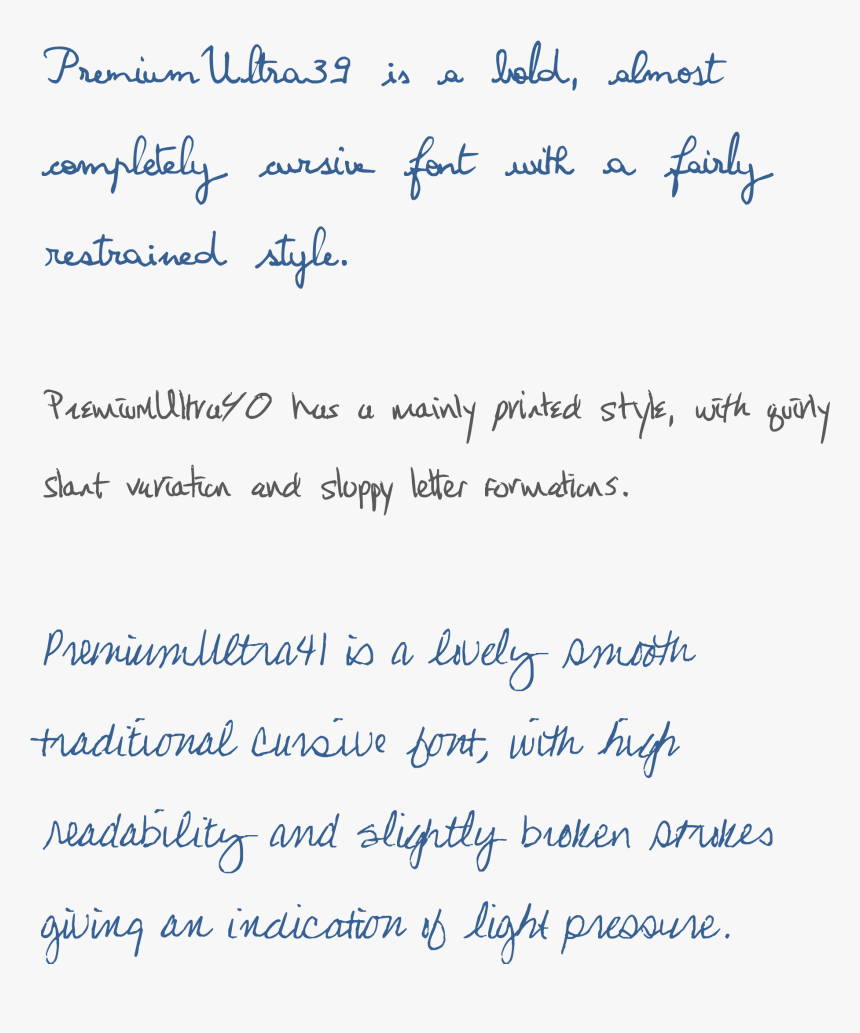 PremiumUltra39 is a bold, almost
completely cursive font with a fairly
restrained style.
PremiumUltra40 has a mainly printed style, with quirly
slant variation and sloppy letter formations.
PremiumUltra41 is a lovely smooth
traditional cursive font, with high
readability and slightly broken strokes
giving an indication of light pressure.